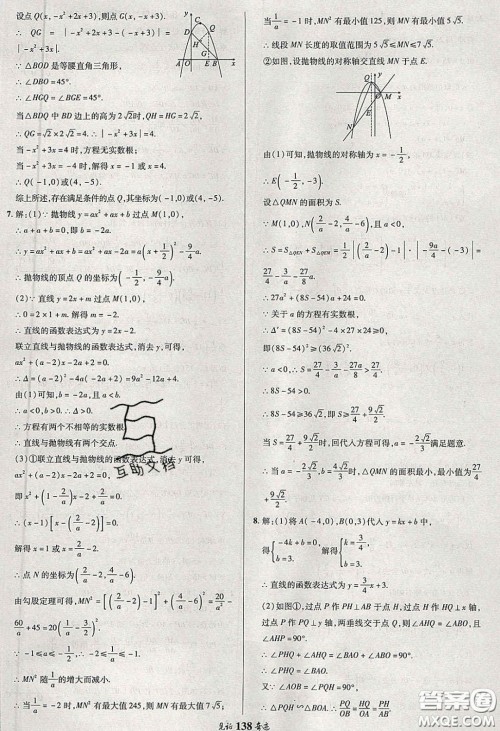 设点 Q(x,-x²+2x+3),则点 G(x,-x+3).
∴ QG=|-x²+2x+3-(-x+3)|=
|-x²+3x|.
∵ △BOD 是等腰直角三角形,
∴ ∠DBO=45°.
∴ ∠HGQ=∠BGE=45°.
当△BDQ 中 BD 边上的高为 2√2时,QH=HG=2√2.
∴ QG=√2×2√2=4.∴ |-x²+3x|=4.
当-x²+3x=4 时,方程无实数根;
当-x²+3x=-4 时,解得 x₁=-1,x₂=4.
∴ Q(-1,0)或(4,-5).
综上所述,存在满足条件的点 Q,其坐标为(-1,0)或(4,-5).
7. 解:(1)∵ 抛物线 y=ax²+ax+b 过点 M(1,0),
∴ a+a+b=0,即 b=-2a.
∴ y=ax²+ax+b=ax²+ax-2a=a(x+1/2)²-9/4 a.
∴ 抛物线的顶点 Q 的坐标为(-1/2,-9/4 a).
(2)∵ 直线 y=2x+m 过点 M(1,0),
∴ 0=2×1+m.解得 m=-2.
∴ 直线的函数表达式为 y=2x-2.
联立直线与抛物线的函数表达式,消去 y,可得
ax²+(a-2)x-2a+2=0.
∴ Δ=(a-2)²-4a(-2a+2)=9a²-12a+4.
由(1)可知,b=-2a,且 a<b,
∴ a<0,b>0.∴ Δ>0.
∴ 方程有两个不相等的实数根.
∴ 直线与抛物线有两个交点.
(3)①联立直线与抛物线的函数表达式,消去 y,可得
ax²+(a-2)x-2a+2=0,
即 x²+(1-2/a)x-2+2/a=0.
∴ (x-1)[x-(2/a-2)]=0.
解得 x=1 或 x=2/a-2.
∴ 点 N 的坐标为(2/a-2,4/a-6).
由勾股定理可得,MN²=[(2/a-2)-1]²+(4/a-6)²=20/a²-
60/a+45=20(1/a-3/2)².
∵ -1≤a≤-1/2,∴ -2≤1/a≤-1.
∴ MN²随1/a的增大而减小.
∴ 当1/a=-2 时,MN²有最大值 245,则 MN 有最大值 7√5;
当1/a=-1 时,MN²有最小值 125,则 MN 有最小值 5√5.
∴ 线段 MN 长度的取值范围为 5√5≤MN≤7√5.
②如图,设抛物线的对称轴交直线 MN 于点 E.
由(1)可知,抛物线的对称轴为 x=-1/2,
∴ E(-1/2,-3).
设△QMN 的面积为 S.
∵ M(1,0),N(2/a-2,4/a-6),且 a<0,
∴ S=S△QEN+S△QEM=1/2|(2/a-2)-1|·|-9a/4-(-3)|=
27/4-3/a-27a/8.
∴ 27a²+(8S-54)a+24=0.
∵ 关于 a 的方程有实数根,
∴ Δ'=(8S-54)²-4×27×24≥0,
即(8S-54)²≥(36√2)².
∵ a<0,∴ S=27/4-3/a-27a/8>27/4.
∴ 8S-54>0.∴ 8S-54≥36√2,
即 S≥27/4+9√2/2.
当 S=27/4+9√2/2时,回代入方程可得 a=-2√2/3满足题意.
∴ 当 a=-2√2/3时,△QMN 的面积最小,最小值为27/4+
9√2/2.
8. 解:(1)将 A(-4,0),B(0,3)代入 y=kx+b 中,
得{-4k+b=0,b=3.解得{k=3/4,b=3.
∴ 直线的函数表达式为 y=3/4 x+3.
(2)如图①,过点 P 作 PH⊥AB 于点 H,过点 H 作 HQ⊥x 轴,
过点 P 作 PQ⊥y 轴,两垂线交于点 Q,则∠AHQ=∠ABO,且
∠AHP=90°.
∴ ∠PHQ+∠AHQ=∠BAO+∠ABO=90°.
∴ ∠PHQ=∠BAO.
又∵ ∠AOB=∠PQH=90°,
∴ △PQH∽△BOA.∴ PQ/OB=HQ/OA=PH/AB.
互助文档
见证 138 奇迹
答案圈
MXQE.COM